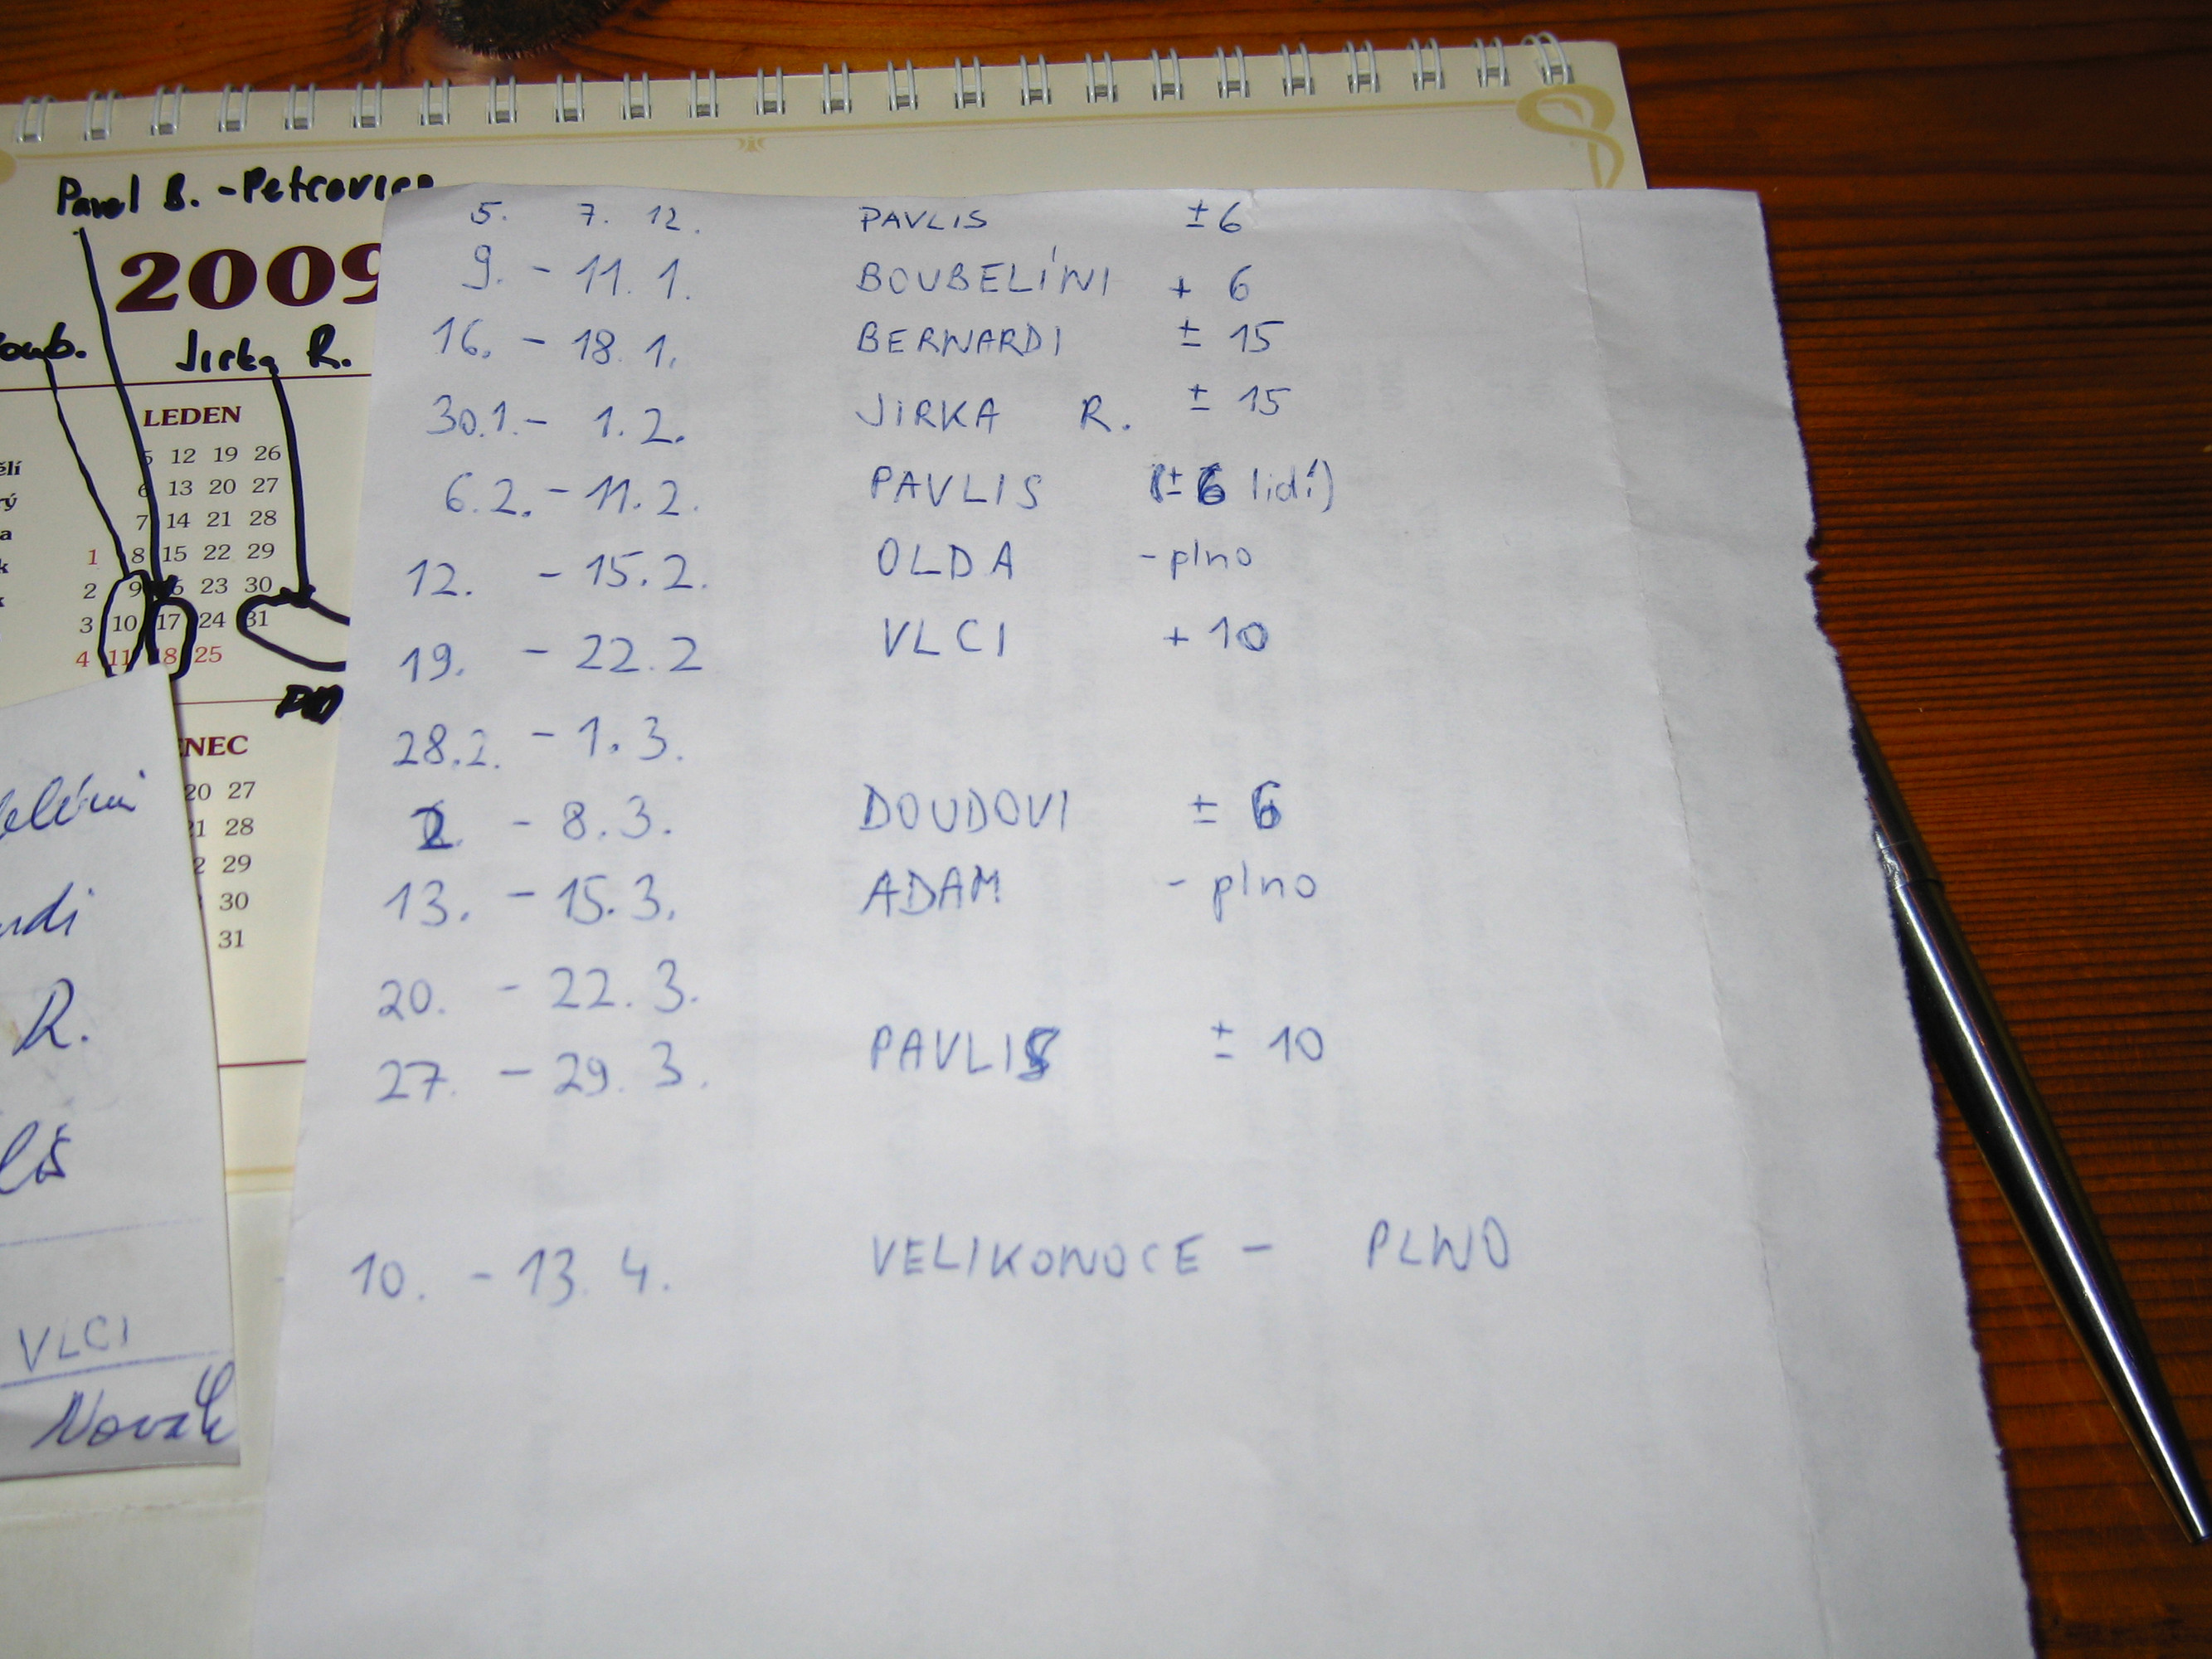 Pavel B. - Petrovice
2009
Jirka R.
LEDEN
5 12 19 26
6 13 20 27
7 14 21 28
1 8 15 22 29
2 9 16 23 30
3 10 17 24 31
4 11 18 25
ENEC
20 27
21 28
22 29
30
31
R.
VLCI
Novák
5. 7. 12. PAVLIS ± 6
9. - 11. 1. BOUBELÍNI + 6
16. - 18. 1. BERNARDI ± 15
30.1. - 1. 2. JIRKA R. ± 15
6.2. - 11.2. PAVLIS (± 6 lidí)
12. - 15.2. OLDA - plno
19. - 22.2 VLCI + 10
28.2. - 1.3.
2. - 8.3. DOUDOVI ± 6
13. - 15.3. ADAM - plno
20. - 22.3.
27. - 29.3. PAVLIS ± 10
10. - 13.4. VELIKONOCE - PLNO